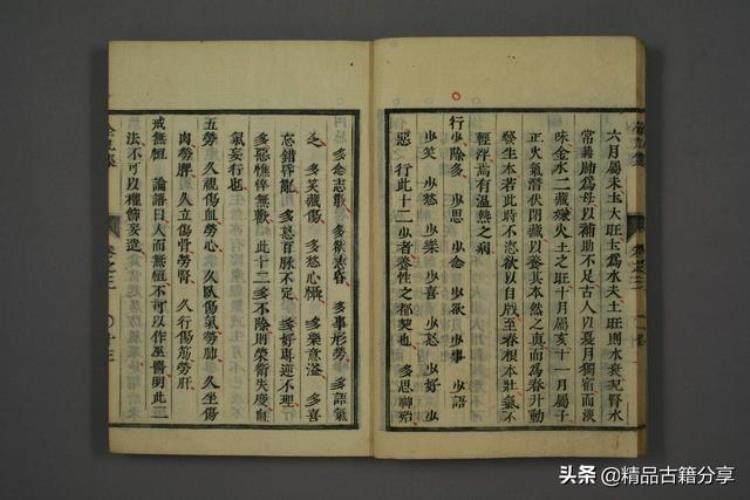 六月屬未土大旺土爲水夫土旺則水衰况腎水
常藉肺爲母以補助不足古人以夏月獨宿而淡
味金水二藏嫌火土之旺十月屬亥十一月屬子
正火氣潛伏閉藏以養其本然之真而爲春升動
發生本若此時不恣欲以自戕至春根本壯氣不
輕浮焉有溫熱之病
行少除多 少思 少念 少欲 少事 少語
少笑 少愁 少樂 少喜 少怒 少好 少
惡 行此十二少者養性之都契也 多思神殆
多念志散 多欲志昏 多事形勞 多語氣
乏 多笑藏傷 多愁心懾 多樂意溢 多喜
忘錯昏亂 多怒百脉不定 多好專迷不理
多惡憔悴無歡 此十二多不除則榮衛失度血
氣妄行也
五勞 久視傷血勞心 久臥傷氣勞肺 久坐傷
肉勞脾 久立傷骨勞腎 久行傷筋勞肝
戒無恒 論語曰人而無恒不可以作巫醫明此二
法不可以權飾妄造
卷之三
十三
头条 @精品古籍分享